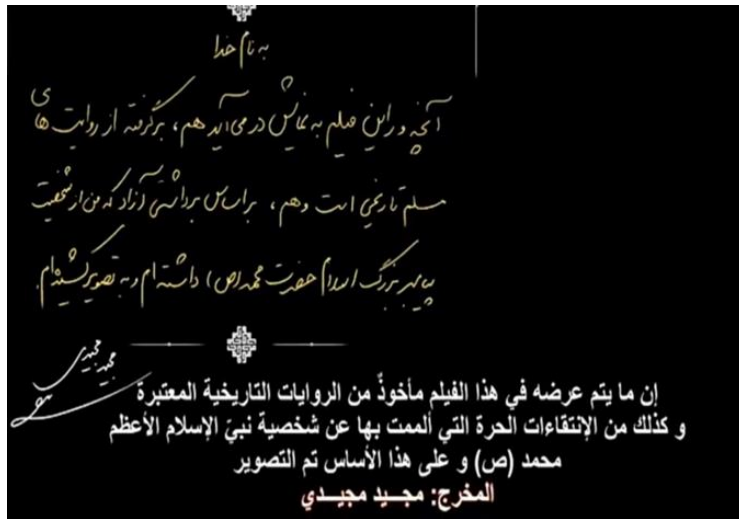 به نام خدا
آنچه در این فیلم به نمایش در می‌آید هم، برگرفته از روایت های
مسلم تاریخی است و هم، براساس برداشتی آزاد که من از شخصیت
پیامبر بزرگ اسلام حضرت محمد (ص) داشته‌ام و به تصویر کشیده‌ام.
مجید مجیدی
إن ما يتم عرضه في هذا الفيلم مأخوذٌ من الروايات التاريخية المعتبرة
و كذلك من الإنتقاءات الحرة التي ألممت بها عن شخصية نبيّ الإسلام الأعظم
محمد (ص) و على هذا الأساس تم التصوير
المخرج: مجــيد مجيــدي